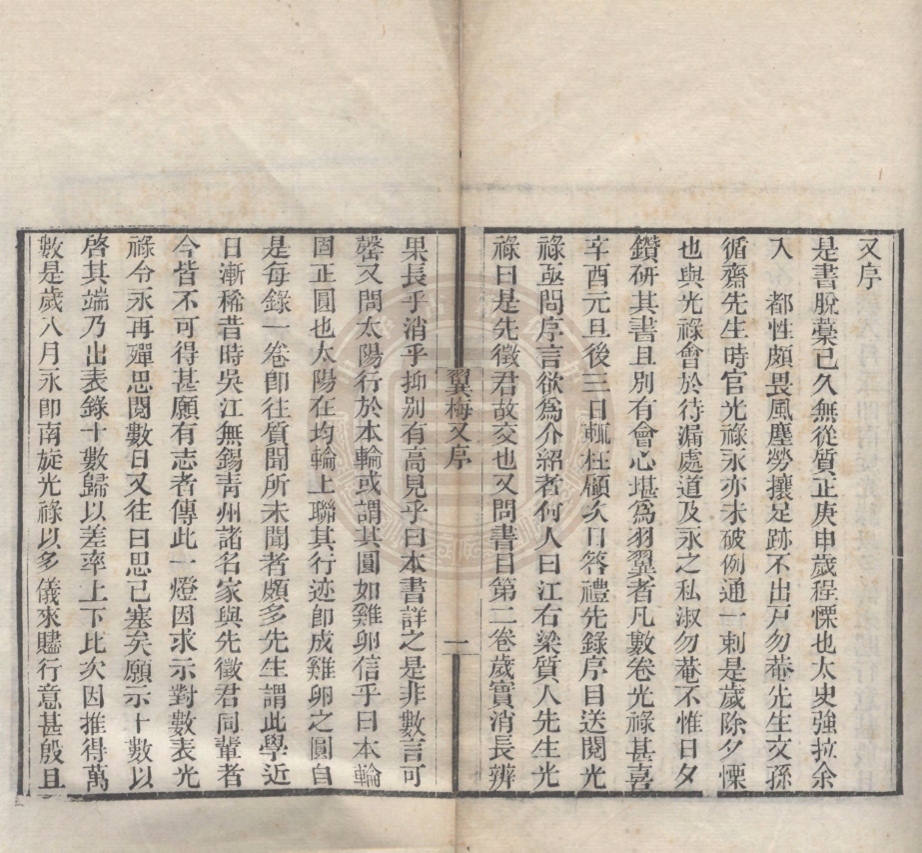 又序
是書脫藁已久無從質正庚申歲程慄也太史強拉余
入　都性頗畏風塵勞攘足跡不出戶勿菴先生文孫
循齋先生時官光祿永亦未破例通一刺是歲除夕慄
也與光祿會於待漏處道及永之私淑勿菴不惟日夕
鑽研其書且別有會心堪爲羽翼者凡數卷光祿甚喜
辛酉元旦後三日輒枉顧久乃答禮先錄序目送閱光
祿亟問序言欲爲介紹者何人曰江右梁質人先生光
祿曰是先徵君故交也又問書目第二卷歲實消長辨
翼梅又序
一
果長乎消乎抑別有高見乎曰本書詳之是非數言可
罄又問太陽行於本輪或謂其圓如雞卵信乎曰本輪
固正圓也太陽在均輪上聯其行迹卽成雞卵之圓自
是每錄一卷卽往質聞所未聞者頗多先生謂此學近
日漸稀昔時吳江無錫靑州諸名家與先徵君同輩者
今皆不可得甚願有志者傳此一燈因求示對數表光
祿令永再殫思閱數日又往曰思已塞矣願示十數以
啓其端乃出表錄十數歸以差率上下比次因推得萬
數是歲八月永卽南旋光祿以多儀來贐行意甚殷且